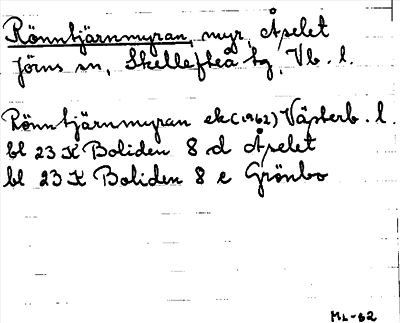 Rönntjärnmyran, myr, Åselet
Jörns sn, Skellefteå tg, Vb. l.
Rönntjärnmyran ek (1962) Västerb. l.
bl 23 K Boliden 8 d Åselet
bl 23 K Boliden 8 e Grönbo
ML-62